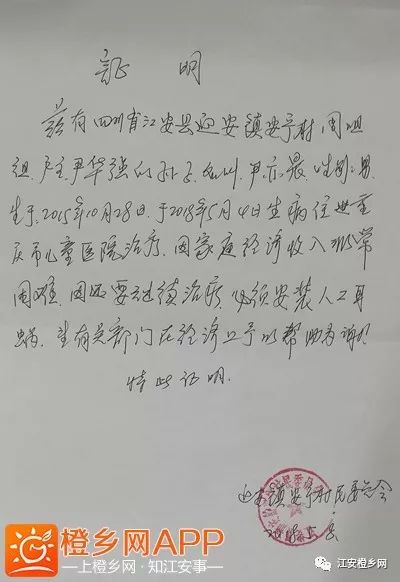 证 明
兹有四川省江安县迎安镇安宁村周咀
组.户主尹华强的孙子,名叫.尹亦晨.性别:男.
生于.2015年10月28日.于2018年5月4日生病住进重
庆市儿童医院治疗.因家庭经济收入非常
困难.因还要继续治疗 必须安装人工耳
蜗.望有关部门在经济上予以帮助为谢!
特此证明.
迎安镇安宁村民委员会
橙乡网APP
—上橙乡网·知江安事—
江安橙乡网